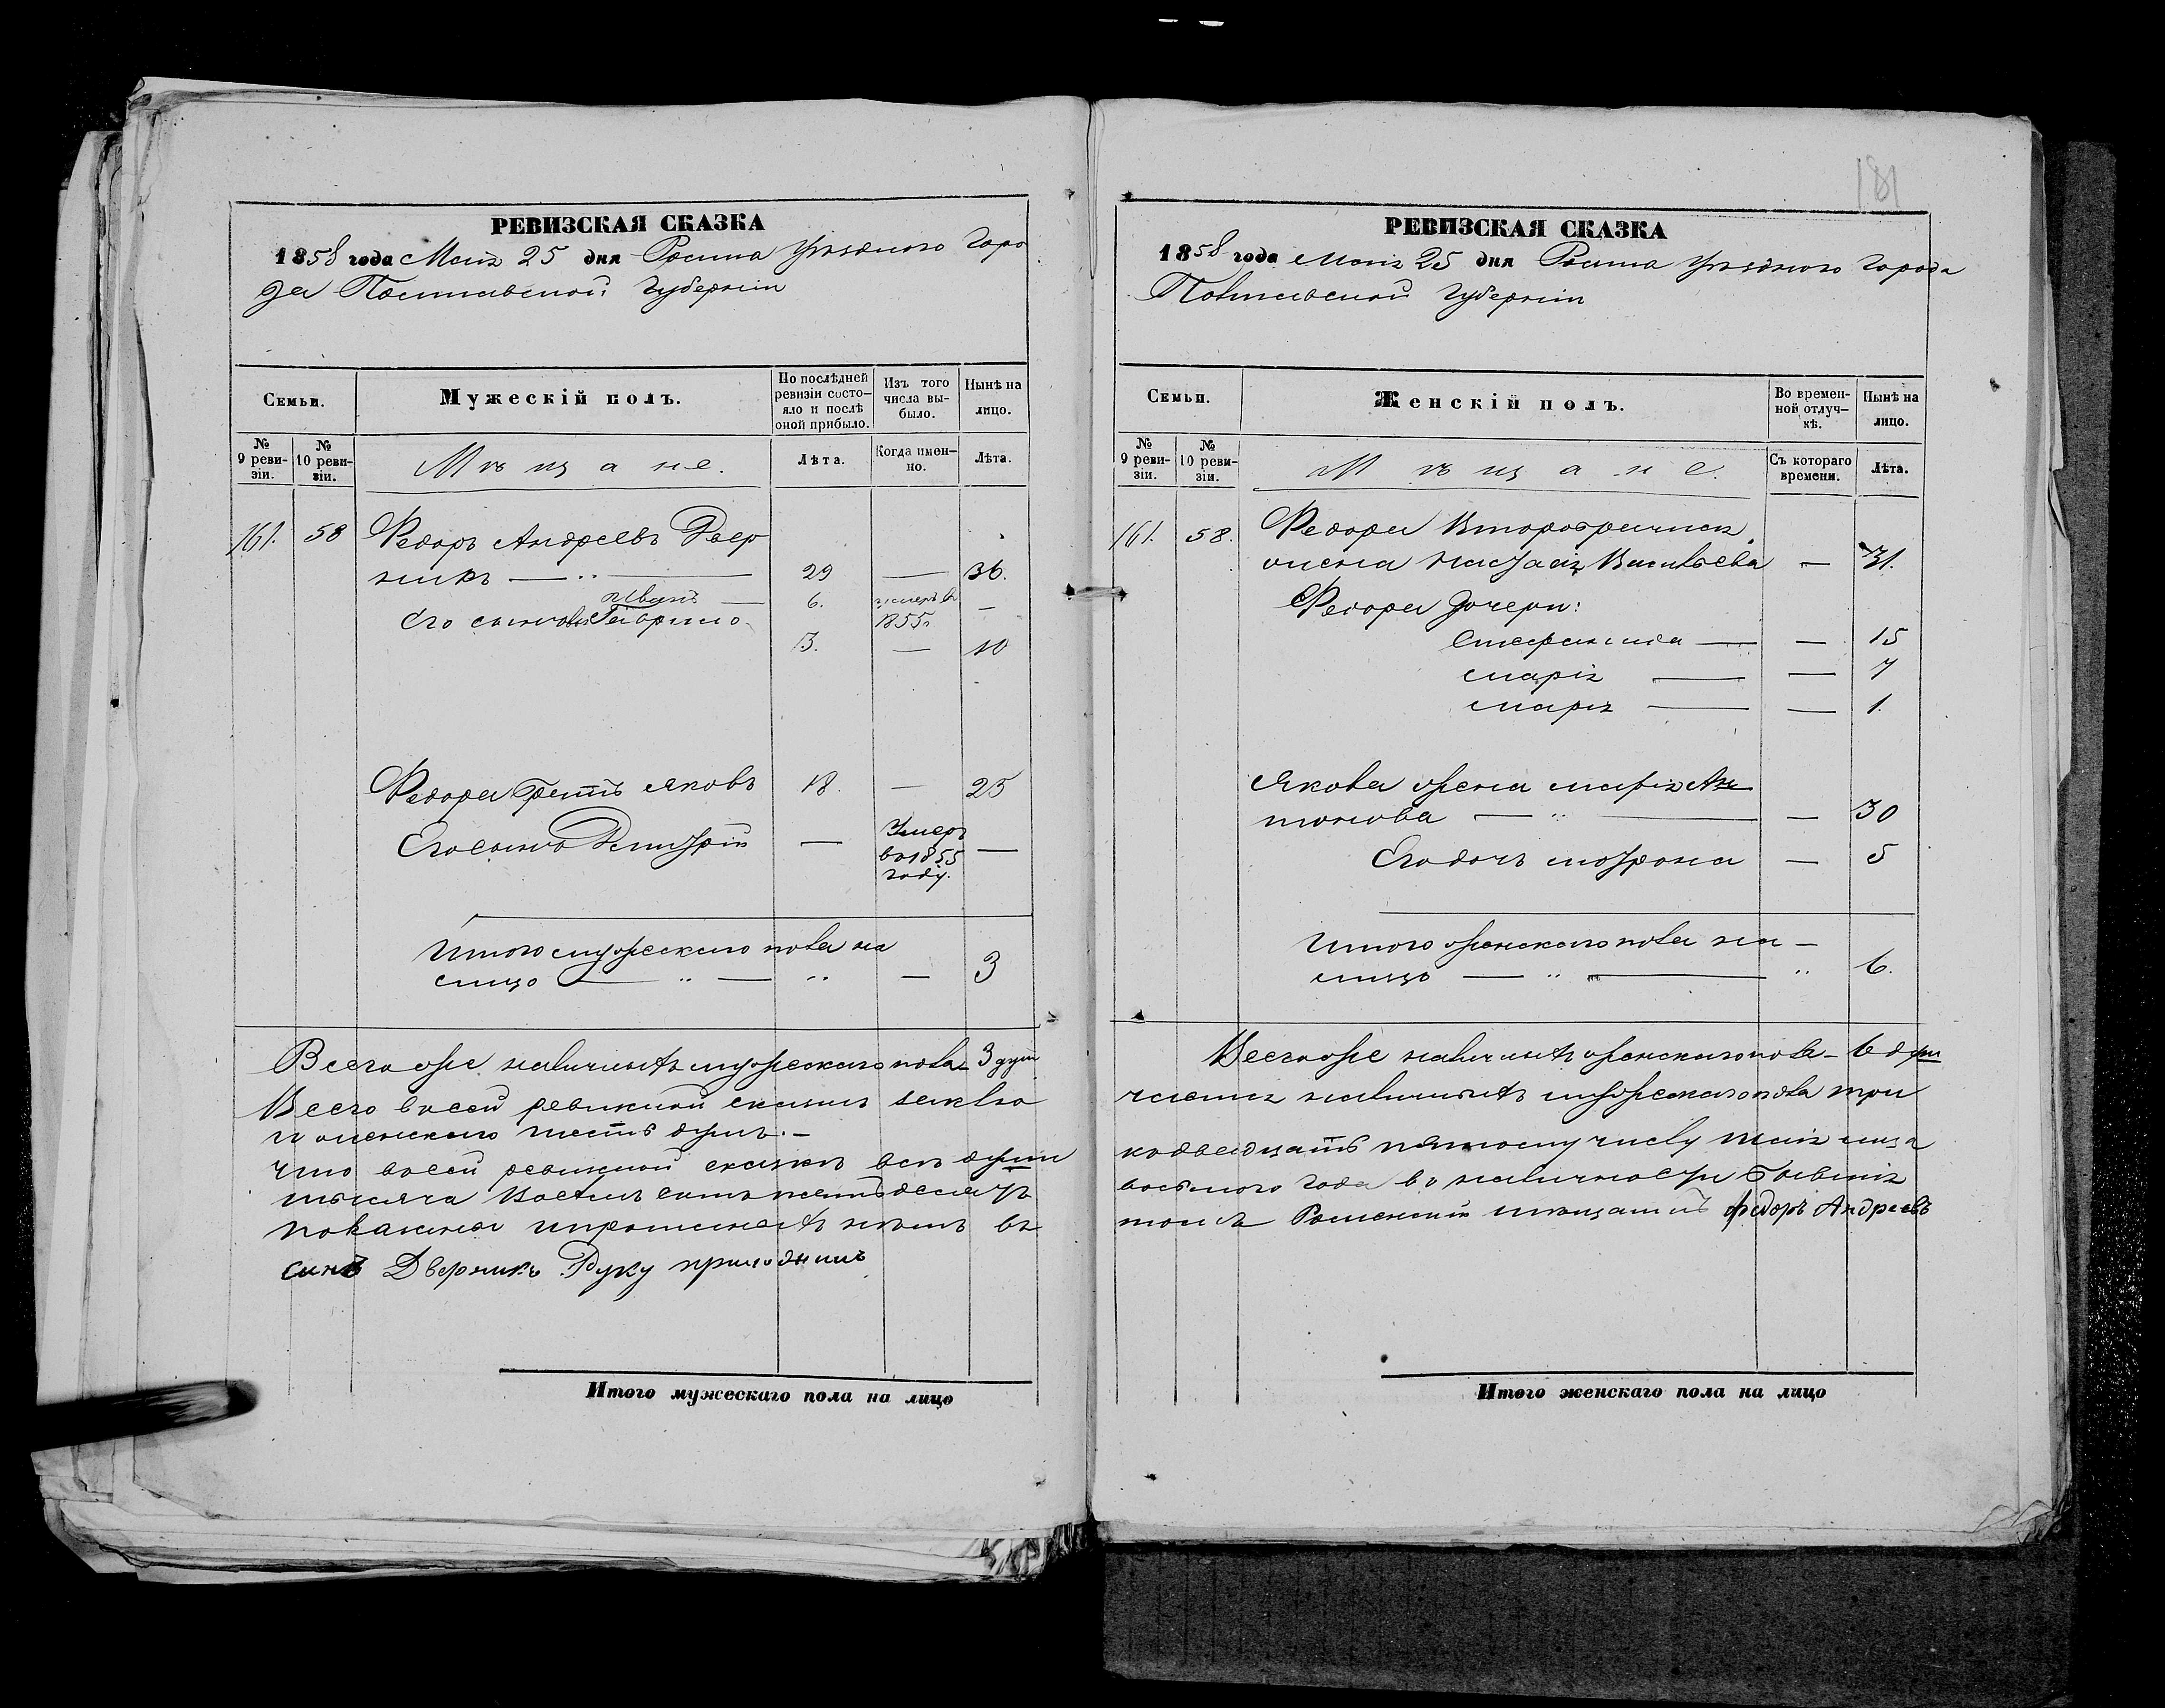 181
РЕВИЗСКАЯ СКАЗКА
1858 года Маія 25 дня Ромна Уѣзднаго Горо
да Полтавской Губерніи
Семьи.
Мужескій полъ.
По послѣдней ревизіи состо-яло и послѣ оной прибыло.
Изъ того числа вы-было.
Нынѣ на лицо.
№ 9 реви-зіи.
№ 10 реви-зіи.
Мѣщане.
Лѣта.
Когда имен-но.
Лѣта.
161. 58 Федоръ Андреевъ Двер
никъ — 29 — 36.
Иванъ — 6. умеръ въ 1855 г. —
Его сыновья Григорій
3. — 10
Федора братъ Яковъ 18. — 25
Его сынъ Дмитрій — Умеръ во 1855 году. —
Итого мужескаго пола на
лицо — — — 3
Всего же наличныхъ мужескаго пола 3 души
Всего в сей ревизкой сказкѣ
и женскаго шесть душъ. —
что в сей ревизкой сказкѣ всѣ души
тысяча восемь сотъ пятьдесятъ
показаны и прописныхъ нѣтъ въ
синъ Дверникъ Руку приложилъ
Итого мужескаго пола на лицо
РЕВИЗСКАЯ СКАЗКА
1858 года Маія 25 дня Ромна Уѣзднаго Города
Полтавской Губерніи
Семьи.
Женскій полъ.
Во времен-ной отлуч-кѣ.
Нынѣ на лицо.
№ 9 реви-зіи.
№ 10 реви-зіи.
Мѣщане.
Съ котораго времени.
Лѣта.
161. 58. Федора Второбрачная
жена Настасія Васильева — 31.
Федора дочери:
Стефанида — — 15
Марія — — 7
Марія — — 1.
Якова жена Марія Ан
тонова — — 30
Его дочь Мотрона — 5
Итого женскаго пола на —
лицо — — 6.
Всего же наличныхъ женскаго пола — 6 душ
наличныхъ мужескаго пола три
ко двадцать пятому числу Маія мца
восьмого года в наличности бывшія
томъ Роменскій мѣщанинъ Федоръ Андреевъ
Итого женскаго пола на лицо